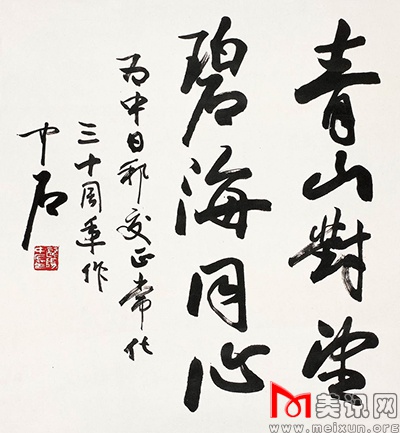 青山對望
碧海同心
为中日邦交正常化
三十周年作
中石
美讯网
www.meixun.org